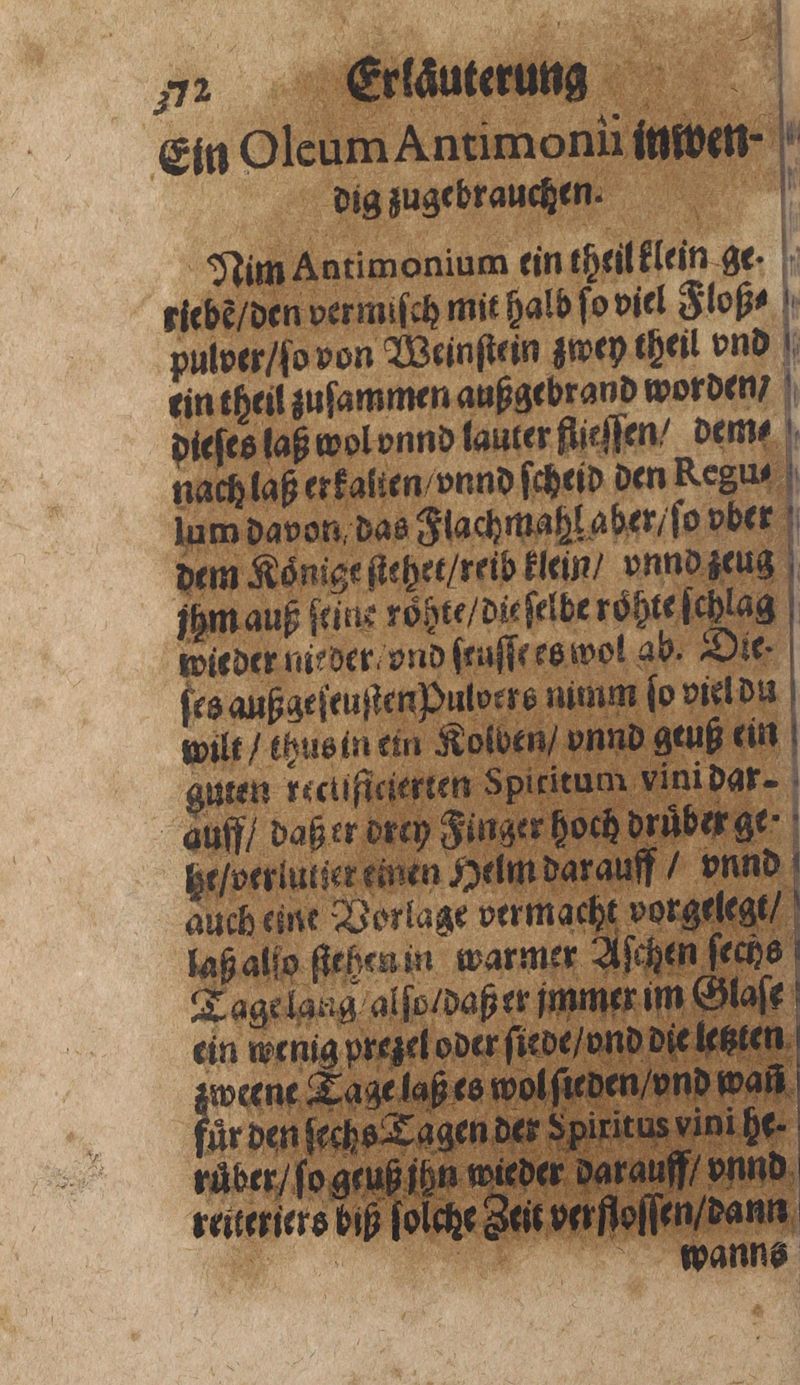 372 Erläuterung
Ein Oleum Antimonii inwen-
dig zugebrauchen.
Nim Antimonium ein theil klein ge-
riebẽ/den vermiſch mit halb ſo viel Floß⸗
pulver/ſo von Weinſtein zwey theil vnd
ein theil zuſammen außgebrand worden/
dieſes laß wol vnnd lauter flieſſen/ dem⸗
nach laß erkalten/vnnd ſcheid den Regu⸗
lum davon/das Flachmahl aber/ſo vber
dem Koͤnige ſtehet/reib klein/ vnnd zeug
jhm auß ſeine roͤhte/dieſelbe roͤhte ſchlag
wieder nieder/vnd ſeuſſe es wol ab. Die-
ſes außgeſeuſten Pulvers nimm ſo viel du
wilt / thus in ein Kolben/ vnnd geuß ein
guten rectificierten Spiritum vini dar-
auff/ daß er drey Finger hoch druͤber ge-
he/verlutier einen Helm darauff / vnnd
auch eine Vorlage vermacht vorgelegt/
laß alſo ſtehen in warmer Aſchen ſechs
Tage lang/alſo/daß er jmmer im Glaſe
ein wenig prezel oder ſiede/vnd die letzten
zweene Tage laß es wol ſieden/vnd wañ
fuͤr den ſechs Tagen der Spiritus vini he-
ruͤber/ſo geuß jhn wieder darauff/ vnnd
reiteriers biß ſolche Zeit verfloſſen/dann
wanns